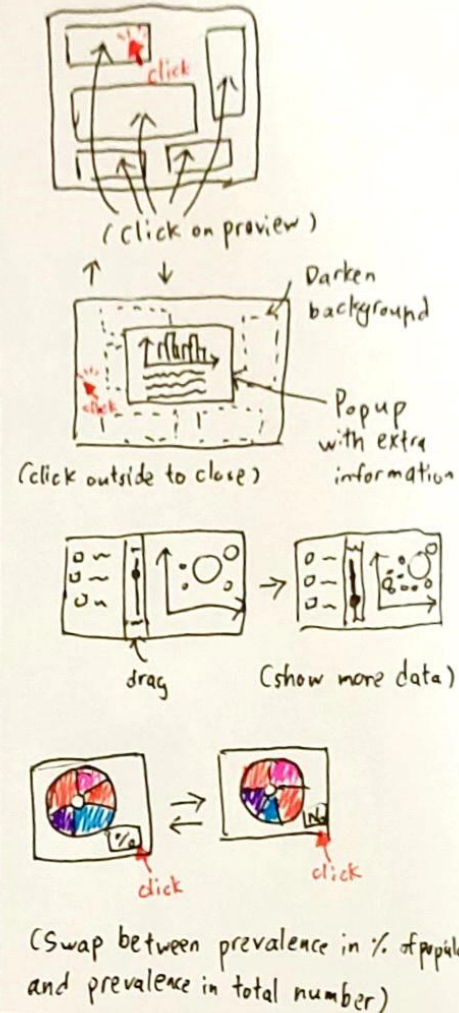 click
(click on preview)
Darken
background
click
Popup
with extra
information
(click outside to close)
drag
(show more data)
%
No
click
click
(Swap between prevalence in % of popula
and prevalence in total number)